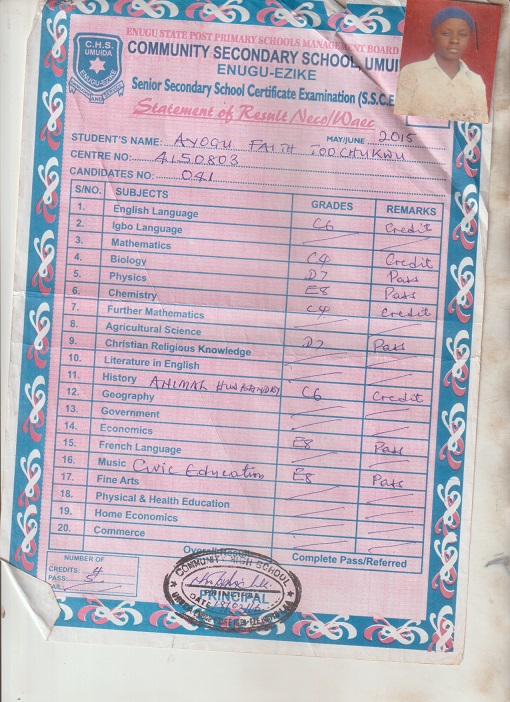 ENUGU STATE POST PRIMARY SCHOOLS MANAGEMENT BOARD
C.H.S. UMUIDA
ENUGU-EZIKE
COMMUNITY SECONDARY SCHOOL, UMUI
ENUGU-EZIKE
Senior Secondary School Certificate Examination (S.S.C.E
Statement of Result Neco/Waec
MAY/JUNE 2015
STUDENT'S NAME: AYOGU FAITH TOOCHUKWU
CENTRE NO: 4150803
CANDIDATES NO: 041
S/NO. SUBJECTS GRADES REMARKS
1. English Language C6 Credit
2. Igbo Language
3. Mathematics C4 Credit
4. Biology D7 Pass
5. Physics E8 Pass
6. Chemistry C4 Credit
7. Further Mathematics
8. Agricultural Science D7 Pass
9. Christian Religious Knowledge
10. Literature in English
11. History ANIMAL HUSBANDRY C6 Credit
12. Geography
13. Government
14. Economics E8 Pass
15. French Language
16. Music Civic Education E8 Pass
17. Fine Arts
18. Physical & Health Education
19. Home Economics
20. Commerce
Overall Result Complete Pass/Referred
NUMBER OF
CREDITS: 4
PASS: 5
COMMUNITY HIGH SCHOOL
PRINCIPAL
DATE